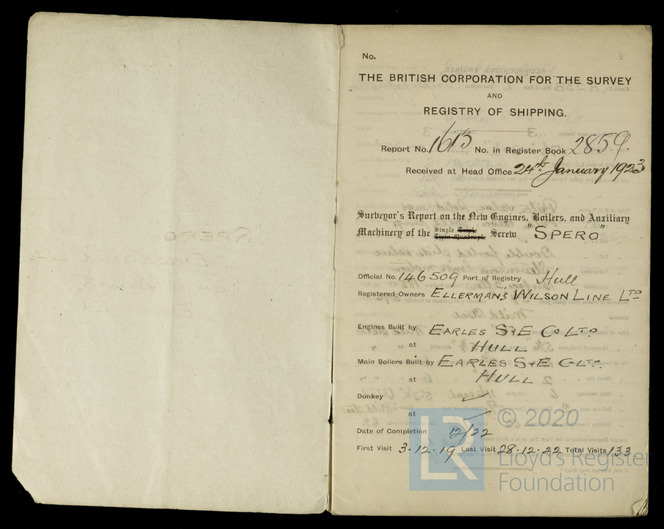 No.
THE BRITISH CORPORATION FOR THE SURVEY
AND
REGISTRY OF SHIPPING.
Report No. 1613 No. in Register Book 2859.
Received at Head Office 24th January 1923
Surveyor's Report on the New Engines, Boilers, and Auxiliary
Machinery of the Single Triple Twin Quadruple Screw "SPERO"
Official No. 146509 Port of Registry Hull
Registered Owners ELLERMAN'S WILSON LINE LTD
Engines Built by EARLES S & E Co LTD
at HULL
Main Boilers Built by EARLES S & E Co LTD
at HULL
Donkey
at
Date of Completion 12/22
First Visit 3.12.19 Last Visit 28.12.22 Total Visits 133
© 2020
LR Lloyd's Register
Foundation